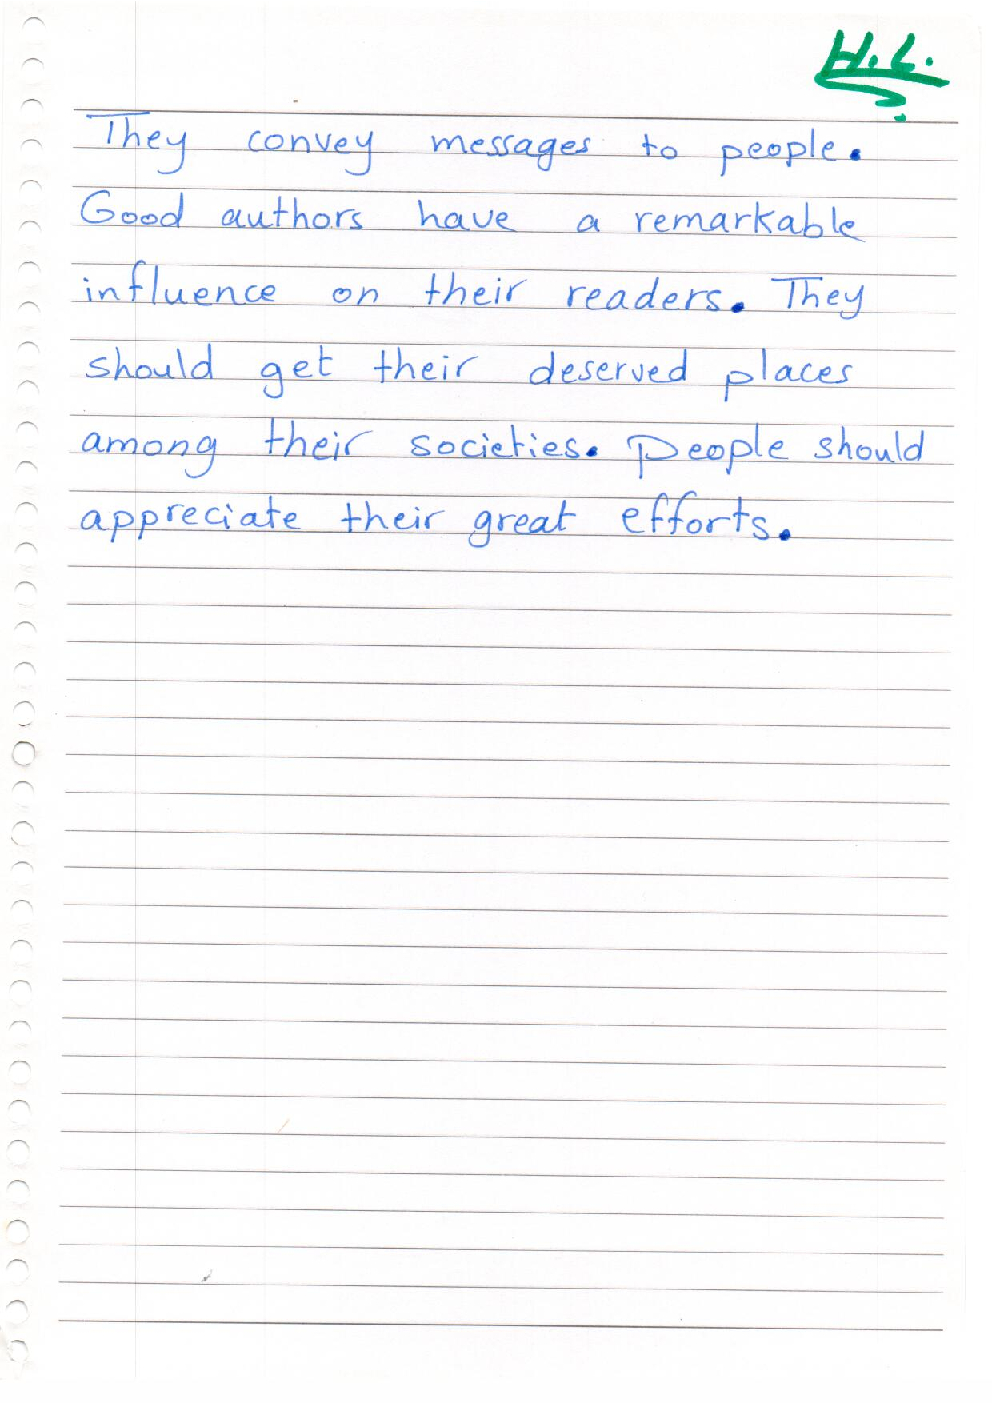 H.L.
They convey messages to people.
Good authors have a remarkable
influence on their readers. They
should get their deserved places
among their societies. People should
appreciate their great efforts.